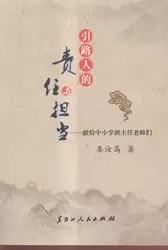 引路人的
责任与担当
——献给中小学班主任老师们
秦汝高 著
黑龙江人民出版社